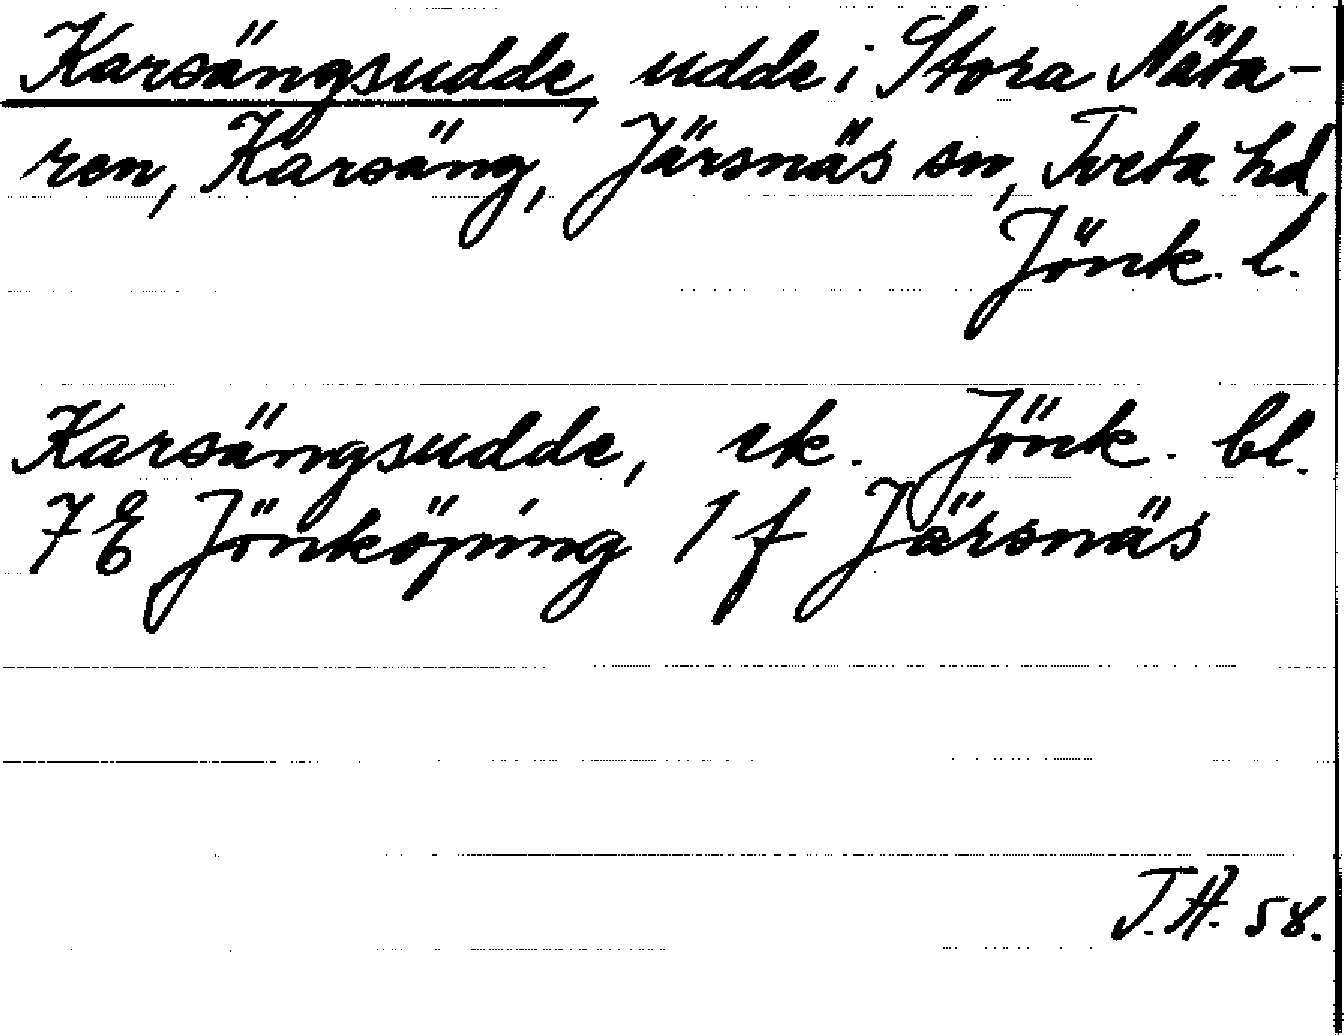 Karsängsudde, udde i Stora Näta-
ren, Karsäng, Järsnäs sn, Tveta hd,
Jönk. l.
Karsängsudde, ek. Jönk. bl.
7E Jönköping 1 f Järsnäs
T.A. 58.